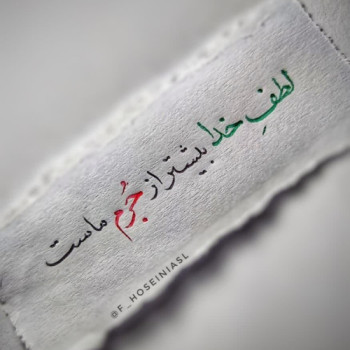 لطفِ خدا بیشتر از جُرم ماست
@F_HOSEINIASL